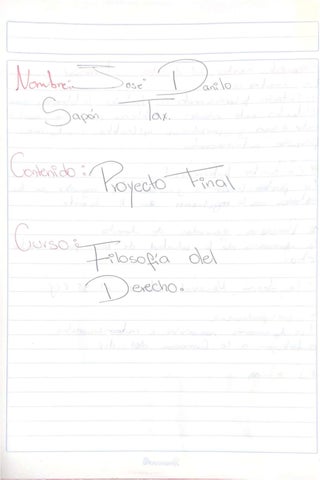 Nombre: José Danilo
Sapón Tax.
Contenido: Proyecto Final
Curso: Filosofía del
Derecho.